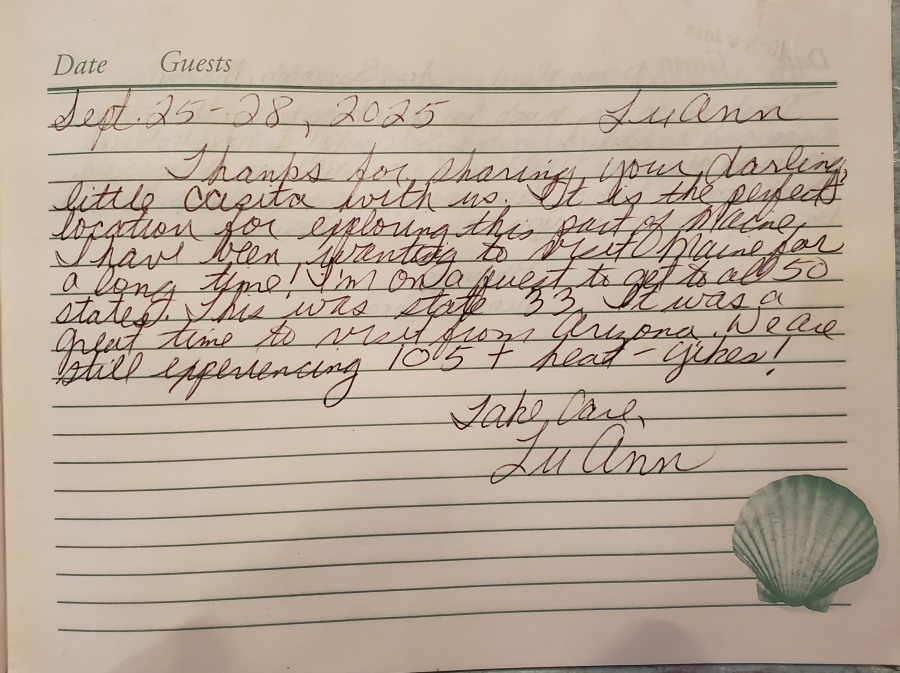 Date Guests
Sept. 25-28, 2025 LuAnn
Thanks for sharing your darling
little casita with us. It is the perfect
location for exploring this part of Maine.
I have been wanting to visit Maine for
a long time! I'm on a quest to get to all 50
states. This was state 33. It was a
great time to visit from Arizona. We are
still experiencing 105+ heat - yikes!
Take Care,
LuAnn